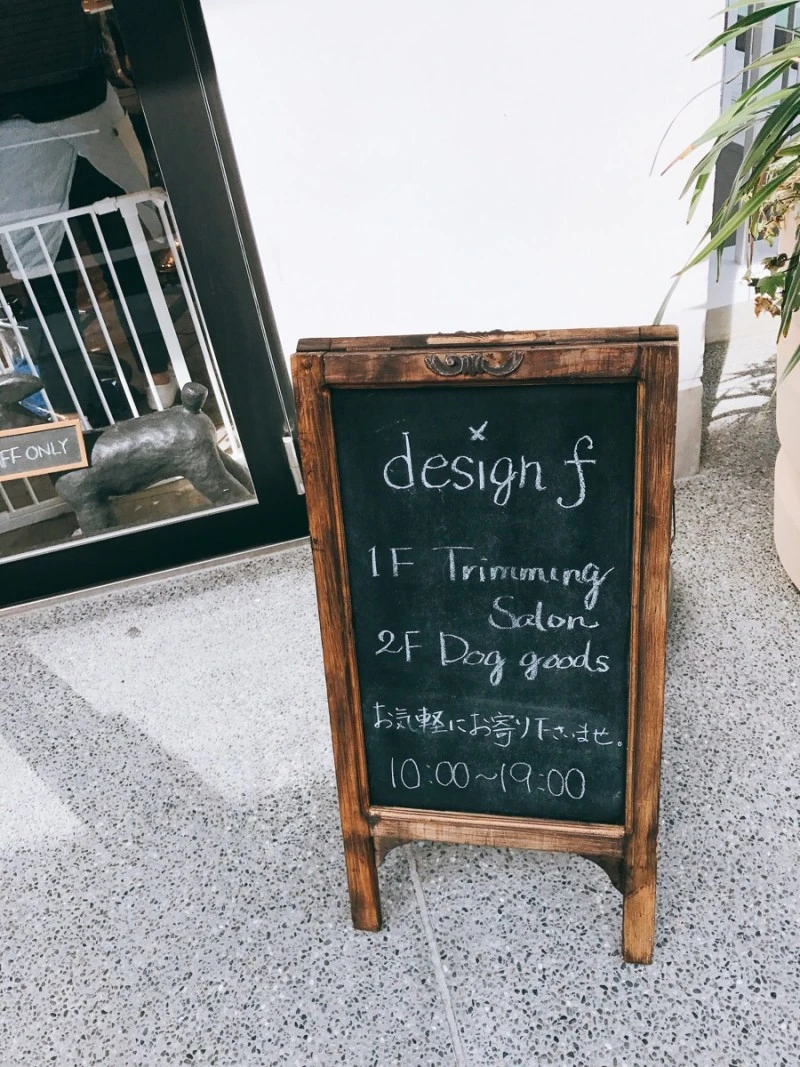 design f
1F Trimming
Salon
2F Dog goods
お気軽にお寄り下さいませ。
10:00~19:00
FF ONLY